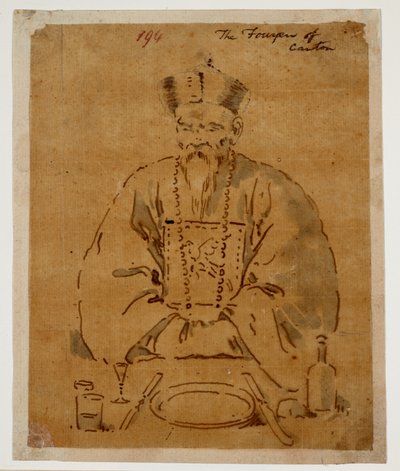 194
The Fouyen of
Canton